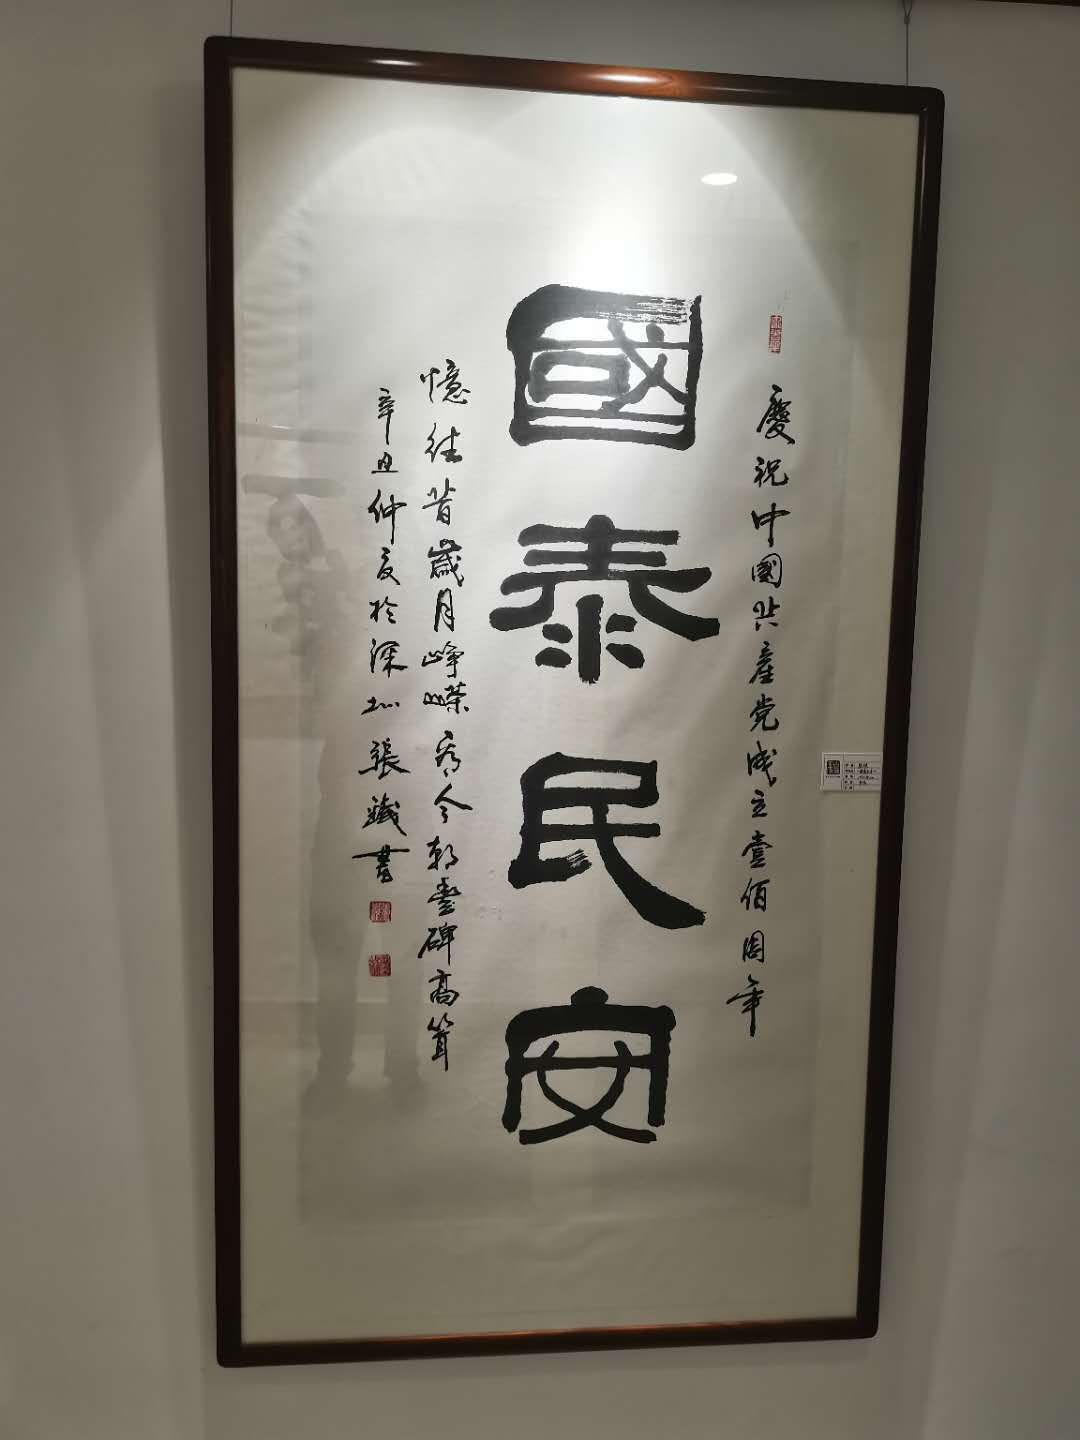 慶祝中國共產党成立壹佰周年
國泰民安
憶往昔歲月崢嶸看今朝豐碑高筑
辛丑仲夏於深圳張鐵書